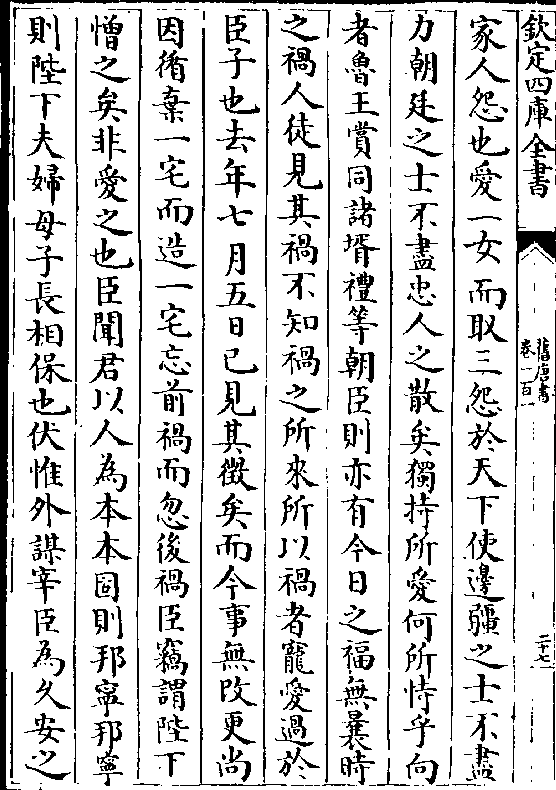 欽定四庫全書
舊唐書
卷一百一
二十七
家人怨也愛一女而取三怨於天下使邊疆之士不盡
力朝廷之士不盡忠人之散矣獨持所愛何所恃乎向
者魯王賞同諸壻禮等朝臣則亦有今日之福無曩時
之禍人徒見其禍不知禍之所來所以禍者寵愛過於
臣子也去年七月五日已見其徵矣而今事無改更尚
因循棄一宅而造一宅忘前禍而忽後禍臣竊謂陛下
憎之矣非愛之也臣聞君以人為本本固則邦寧邦寧
則陛下夫婦母子長相保也伏惟外謀宰臣為久安之